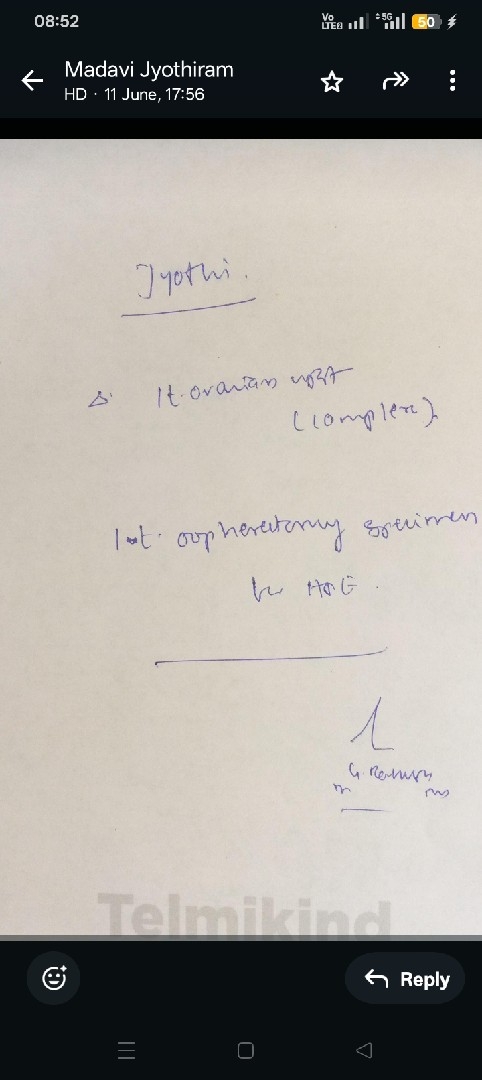 08:52
Vo LTE2 5G 50
Madavi Jyothiram
HD · 11 June, 17:56
Jyothi.
Δ. lt. ovarian cyst
(complex).
lt. oophorectomy specimen
for HPE.
Telmikind
Reply